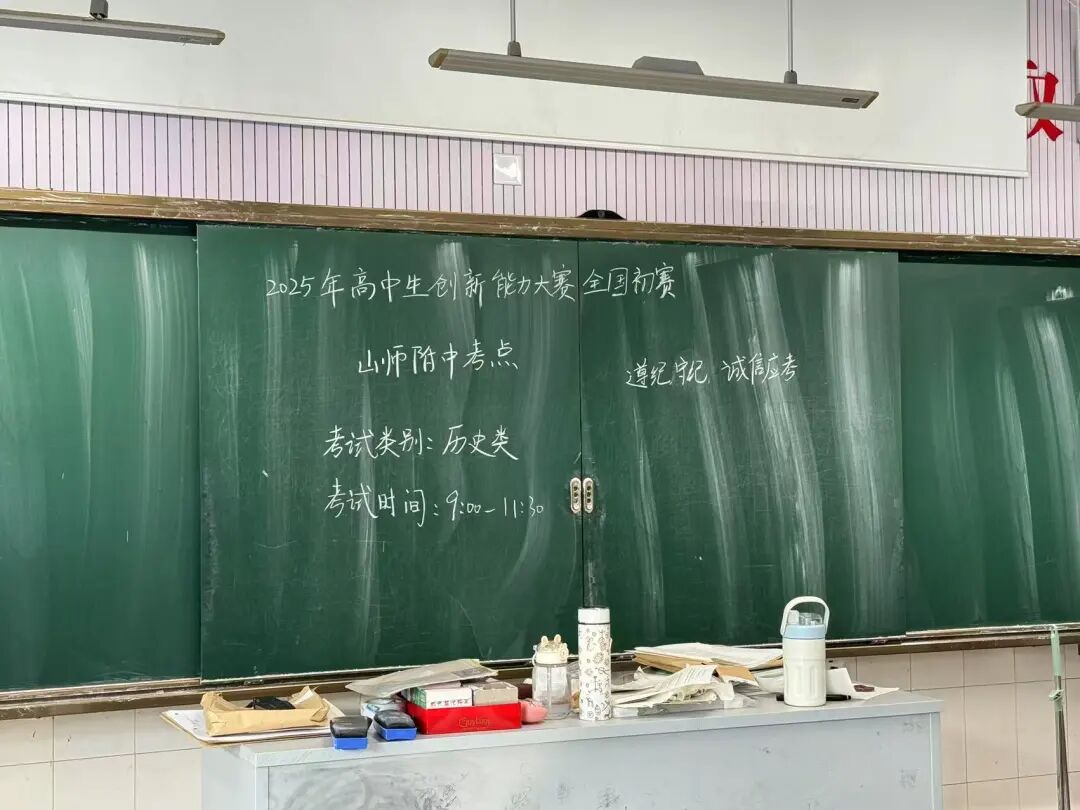 2025年高中生创新能力大赛全国初赛
山师附中考点
遵纪守纪 诚信应考
考试类别:历史类
考试时间:9:00-11:30